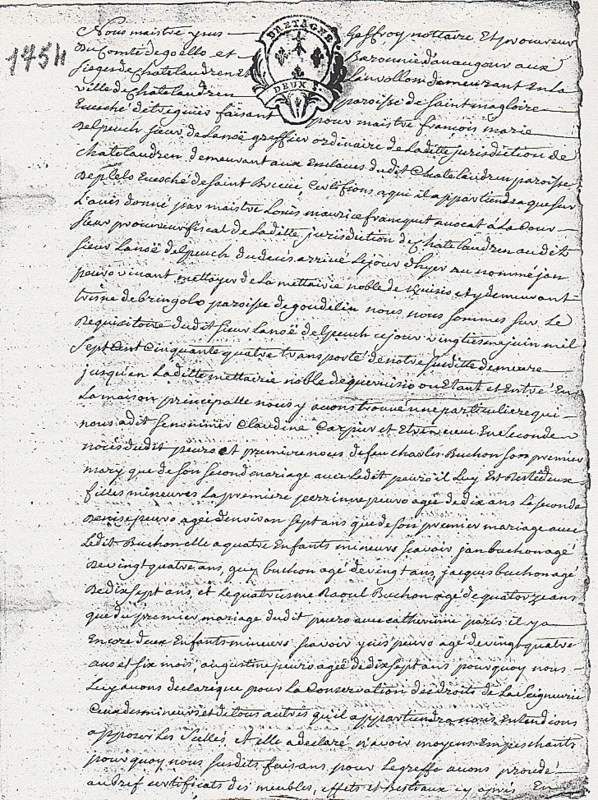 1754
BRETAGNE
DEUX S.
Nous maistre yves Geffroy nottaire Et procureur
Du Comté de goello, et Baronnie d'avaugour aux
sieges de Chatelaudren Et Lanvollon demeurant En la
ville de Chatelaudren paroisse de Saint magloire
Evesché de treguier faisant pour maistre francois marie
Delpeuch sieur de Lanoë greffier ordinaire de Laditte jurisdiction de
Chatelaudren, demeurant aux Enclaves dudit Chatelaudren paroisse
de plelo Evesché de Saint Brieuc, Certifions a qui il appartiendra que sur
L'avis donné par maistre Louis maurice franquet avocat a la Cour
sieur procureur fiscal de Laditte jurisdiction de Chatelaudren audit
sieur Lanoë delpeuch du deces arrivé Le jour d'hyer au nommé jan
peuro vivant mettayer de la mettairie noble de et y demeurant
treve de bringolo paroisse de goudelin nous nous sommes sur Le
Requisitoire dudit sieur Lanoë delpeuch ce jour vingtiesme juin mil
sept Cent Cinquante quatre transporté de notre susditte demeure
jusqu'en Laditte mettairie noble de ou Etant et Entré En
La maison principalle nous y avons trouvé une particuliere qui
nous a dit se nommer Claudine Carpier et Etre veuve En seconde
noces dudit peuro et premiere noces de feu charles Buchon son premier
mary que de son second mariage avec Ledit peuro il Luy Est Resté deux
filles mineures La premiere perrinne peuro agée de dix ans La seconde
Denise peuro agée d'environ sept ans que de son premier mariage avec
Ledit Buchon elle a quatre Enfants mineurs scavoir jan buchon agé
de vingt quatre ans, guy buchon agé de vingt ans jacques buchon agé
de dix sept ans, et Le quatriesme Raoul Buchon agé de quatorze ans
que du premier mariage dudit peuro avec catherinne paris il y a
Encore deux Enfants mineurs scavoir yves peuro agé de vingt quatre
ans et six mois, augustine peuro agée de dix sept ans pourquoy nous
Luy avons declaré que pour La Conservation des droits de La Seigneurie
Ceux des mineurs et de tous autres qu'il appartiendra nous Entendions
apposer Les scellés, Et elle a declaré n'avoir moyens Empeschants
pourquoy nous susdits faisant pour Le greffe avons procedé
au Bref certificats des meubles, effets et Bestiaux cy apres En